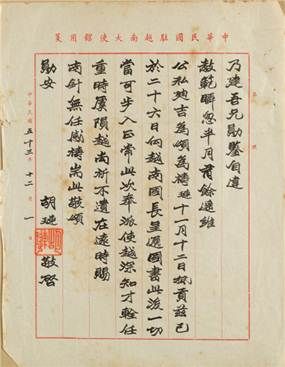 中華民國駐越南大使館用箋
乃建吾兄勛鑒自違
教範瞬忽半月有餘遙維
公私迪吉為頌為禱璉十一月十二日抵貢茲已
於二十六日向越南國長呈遞國書此後一切
當可步入正常此次奉派使越深知才輕任
重時虞隕越尚祈不遺在遠時賜
南針無任感禱耑此敬頌
勛安
胡璉 敬啓
中華民國五十三年十二月一日